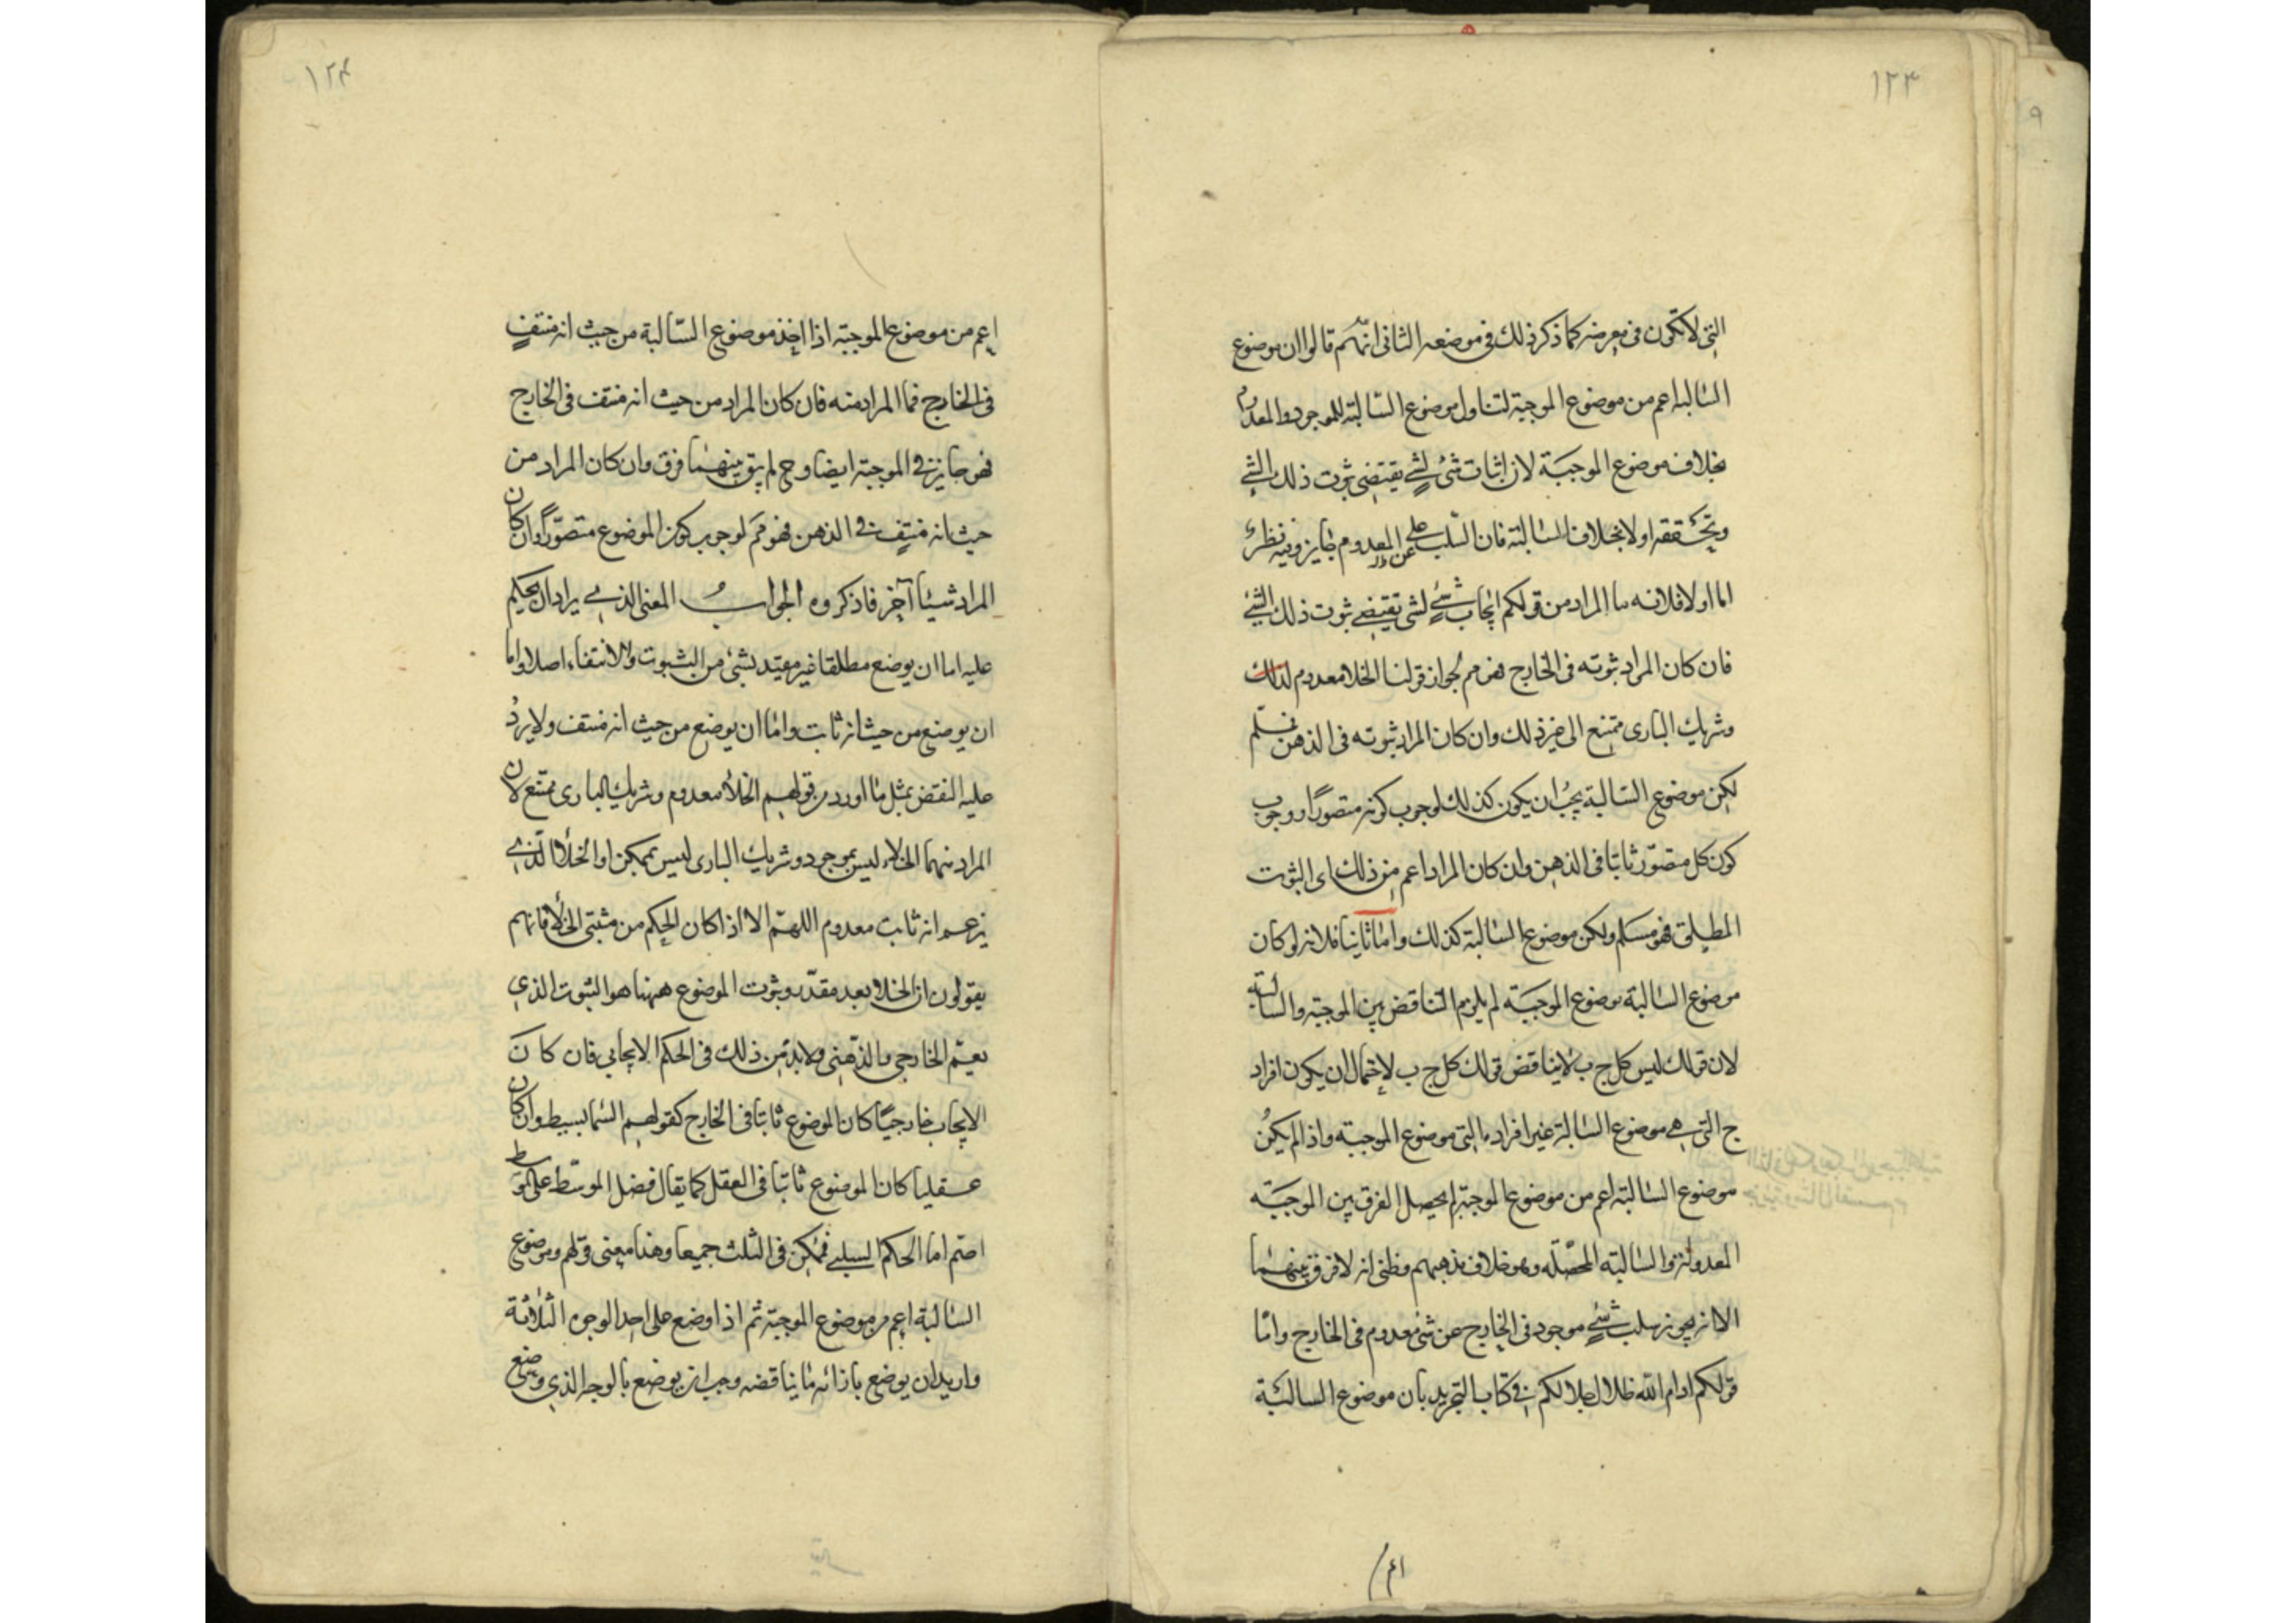 ١٢٣
التى لا تكون فى معرضه كما ذكر ذلك فى موضعه الثانى انهم قالوا ان موضوع
السالبة اعم من موضوع الموجبة لتناول موضوع السالبة للموجود والمعدوم
بخلاف موضوع الموجبة لان اثبات شئ لشئ يقتضى ثبوت ذلك الشئ
وتحققه اولا بخلاف السالبة فان السلب عن المعدوم جايز وفيه نظر
اما اولا فلانه ما المراد من قولكم ايجاب شئ لشئ يقتضى ثبوت ذلك الشئ
فان كان المراد ثبوته فى الخارج فهو مم لجواز قولنا الخلا معدوم لذلك
وشريك البارى ممتنع الى غير ذلك وان كان المراد ثبوته فى الذهن فمسلم
لكن موضوع السالبة يجب ان يكون كذلك لوجوب كونه متصورا ووجوب
كون كل متصور ثابتا فى الذهن وان كان المراد اعم من ذلك اى الثبوت
المطلق فهو مسلم ولكن موضوع السالبة كذلك واما ثانيا فلانه لو كان
موضوع السالبة موضوع الموجبة لم يلزم التناقض بين الموجبة والسالبة
لان قولك ليس كل ج ب لا يناقض قولك كل ج ب لاحتمال ان يكون افراد
ج التى هى موضوع السالبة غير افراده التى موضوع الموجبة واذا لم يكن
موضوع السالبة اعم من موضوع الموجبة لم يحصل الفرق بين الموجبة
المعدولة والسالبة المحصلة وهو خلاف مذهبهم وظنى انه لا فرق بينهما
الا انه يجوز سلب شئ موجود فى الخارج عن شئ معدوم فى الخارج واما
قولكم ادام الله ظلال جلالكم فى كتاب التجريد بان موضوع السالبة
١٢٤
اعم من موضوع الموجبة اذا اخذ موضوع السالبة من حيث انه منتف
فى الخارج فما المراد منه فان كان المراد من حيث انه منتف فى الخارج
فهو جايز فى الموجبة ايضا وح لم يبق بينهما فرق وان كان المراد من
حيث انه منتف فى الذهن فهو مم لوجوب كون الموضوع متصورا وان كان
المراد شيئا آخر فاذكروه الجواب المعنى الذى يراد ان يحكم
عليه اما ان يوضع مطلقا غير مقيد بشئ من الثبوت والانتفاء اصلا واما
ان يوضع من حيث انه ثابت واما ان يوضع من حيث انه منتف ولا يرد
عليه النقض بمثل ما اورد من قولهم الخلأ معدوم وشريك البارى ممتنع لان
المراد منهما الخلاء ليس بموجود وشريك البارى ليس بممكن او الخلأ الذى
يزعم انه ثابت معدوم اللهم الا اذا كان الحكم من مثبتى الخلأ فانهم
يقولون ان الخلا بعد مقدر وثبوت الموضوع ههنا هو الثبوت الذى
يعم الخارجى والذهنى ولابد من ذلك فى الحكم الايجابى فان كان
الايجاب خارجيا كان الموضوع ثابتا فى الخارج كقولهم السما بسيط وان كان
عقليا كان الموضوع ثابتا فى العقل كما يقال فضل الموسط على الموسط
اصم اما الحكم السلبى فممكن فى الثلث جميعا وهذا معنى قولهم وموضوع
السالبة اعم من موضوع الموجبة ثم اذا وضع على احد الوجوه الثلاثة
واريد ان يوضع بازائه ما يناقضه وجب ان يوضع بالوجه الذى وضع